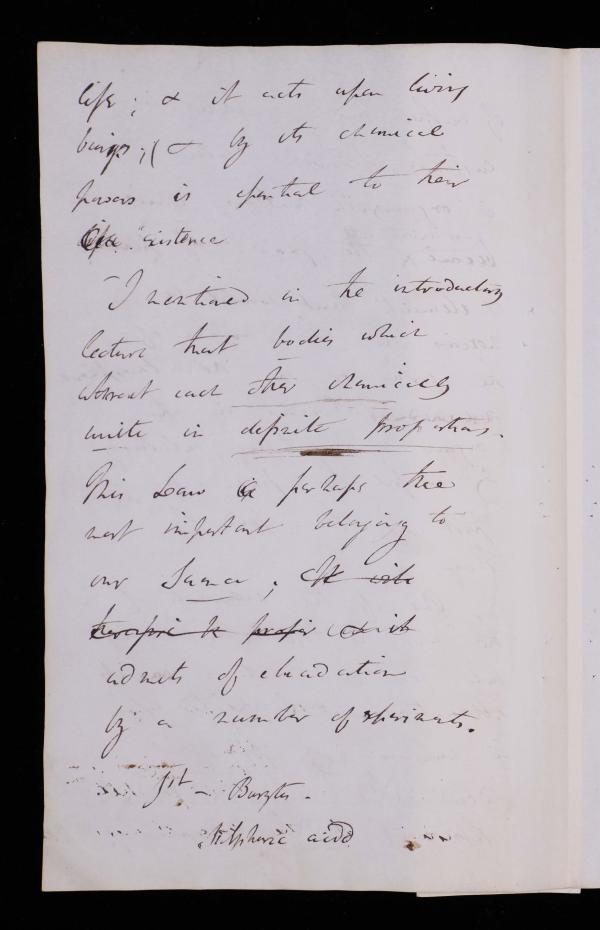 life; & it acts upon living
beings; (& by its chemical
powers is essential to their
existence
I mentioned in the introductory
lecture that bodies which
attract each other chemically
unite in definite proportions.
This Law is perhaps the
most important belonging to
our Science; It will
therefore be proper & it
admits of elucidation
by a number of experiments.
1st - Barytes -
Sulphuric acid